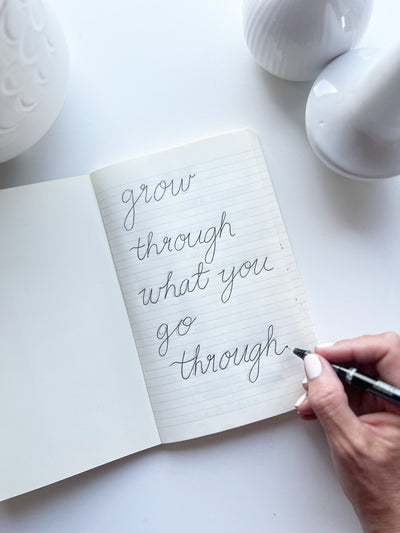 grow
through
what you
go
through.